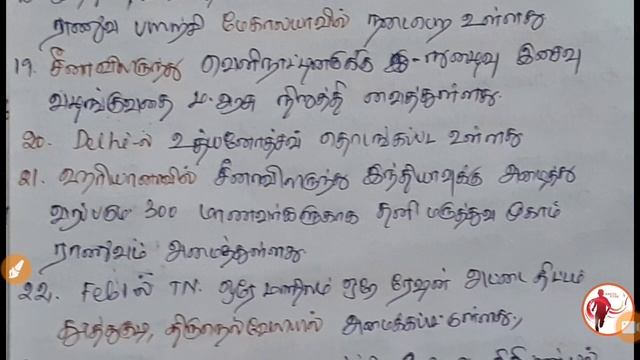 ராணுவ பயிற்சி மேகாலயாவில் நடைபெற உள்ளது
19. சீனாவிலிருந்து வெளிநாட்டினருக்கு இ-நுழைவு இசைவு
வழங்குவதை ம.அரசு நிறுத்தி வைத்துள்ளது.
20. Delhi-ல் உத்யனோத்சவ் தொடங்கப்பட உள்ளது
21. ஹரியானாவில் சீனாவிலிருந்து இந்தியாவுக்கு அழைத்து
வரப்படும் 300 மாணவர்களுக்காக தனி மருத்துவ முகாம்
ராணுவம் அமைத்துள்ளது.
22. Feb1ல் TN. ஒரே மாநிலம் ஒரே ரேஷன் அட்டை திட்டம்
தூத்துக்குடி, திருநெல்வேலியில்